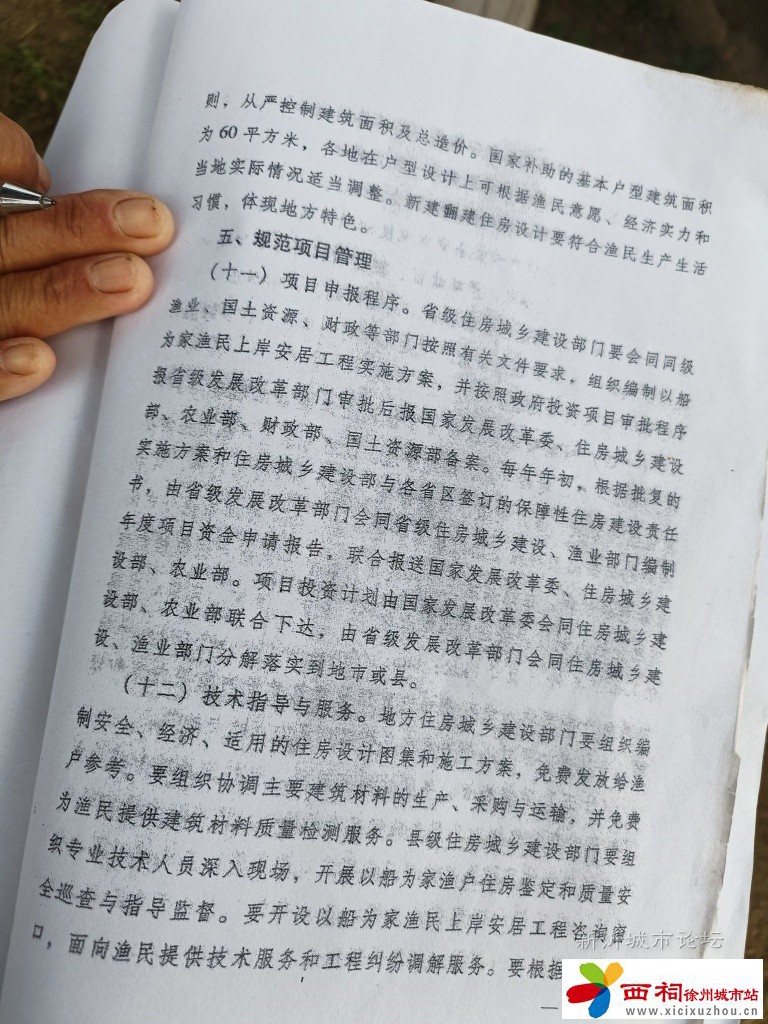 则，从严控制建筑面积及总造价。国家补助的基本户型建筑面积
为60平方米，各地在户型设计上可根据渔民意愿、经济实力和
当地实际情况适当调整。新建翻建住房设计要符合渔民生产生活
习惯，体现地方特色。
五、规范项目管理
（十一）项目申报程序。省级住房城乡建设部门要会同同级
渔业、国土资源、财政等部门按照有关文件要求，组织编制以船
为家渔民上岸安居工程实施方案，并按照政府投资项目审批程序
报省级发展改革部门审批后报国家发展改革委、住房城乡建设
部、农业部、财政部、国土资源部备案。每年年初，根据批复的
实施方案和住房城乡建设部与各省区签订的保障性住房建设责任
书，由省级发展改革部门会同省级住房城乡建设、渔业部门编制
年度项目资金申请报告，联合报送国家发展改革委、住房城乡建
设部、农业部。项目投资计划由国家发展改革委会同住房城乡建
设部、农业部联合下达，由省级发展改革部门会同住房城乡建
设、渔业部门分解落实到地市或县。
（十二）技术指导与服务。地方住房城乡建设部门要组织编
制安全、经济、适用的住房设计图集和施工方案，免费发放给渔
户参考。要组织协调主要建筑材料的生产、采购与运输，并免费
为渔民提供建筑材料质量检测服务。县级住房城乡建设部门要组
织专业技术人员深入现场，开展以船为家渔户住房鉴定和质量安
全巡查与指导监督。要开设以船为家渔民上岸安居工程咨询窗
口，面向渔民提供技术服务和工程纠纷调解服务。要根据
城市论坛
西祠徐州城市站
www.xicixuzhou.cn